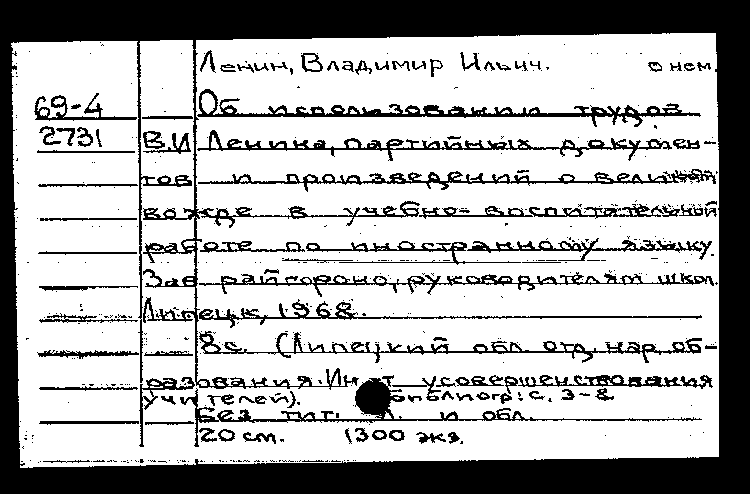 Ленин, Владимир Ильич. о нем.
69-4 Об использовании трудов
2731 В.И Ленина, партийных докумен-
тов и произведений о великой
вожде в учебно-воспитательной
работе по иностранному языку.
Зав райгороно, руководителям школ.
Липецк, 1968.
8с. (Липецкий обл. отд. нар. об-
разования. Ин т усовершенствования
учителей). Библиогр: с. 3-8
Без тит. л. и обл.
20 см. 1300 экз.